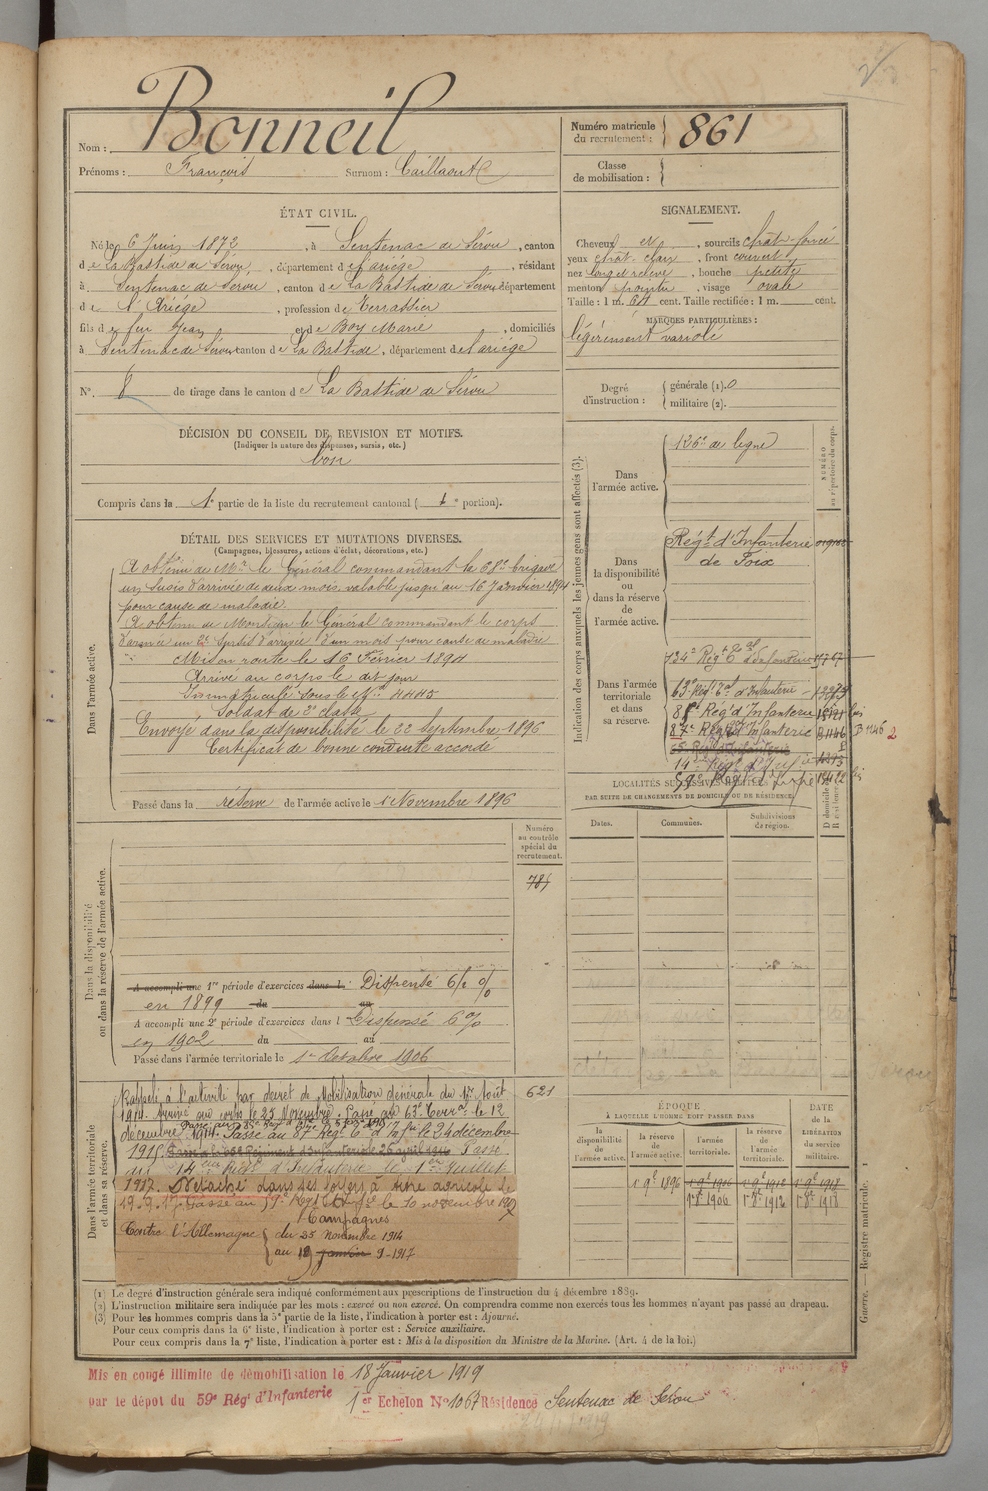 Bonneil
Nom :
Numéro matricule
du recrutement : 861
Prénoms : François Surnom : Caillaout
Classe
de mobilisation :
ÉTAT CIVIL.
Né le 6 Juin 1872, à Sentenac de Sérou, canton
de La Bastide de Sérou, département de l'ariége, résidant
à Sentenac de Sérou, canton de La Bastide de Sérou département
de l'Ariége, profession de Terrassier
fils de feu Jean et de Boy Marie, domiciliés
à Sentenac de Sérou canton de La Bastide, département de l'ariége
N°. 8 de tirage dans le canton de La Bastide de Sérou
DÉCISION DU CONSEIL DE REVISION ET MOTIFS.
(Indiquer la nature des dispenses, sursis, etc.)
bon
Compris dans la 1e partie de la liste du recrutement cantonal ( 1e portion).
SIGNALEMENT.
Cheveux et, sourcils chât-foncé
yeux chât-clair, front couvert
nez long et relevé, bouche petite
menton pointu, visage ovale
Taille : 1 m. 64 cent. Taille rectifiée : 1 m. cent.
MARQUES PARTICULIÈRES :
légèrement variolé
Degré
d'instruction :
générale (1). 0
militaire (2).
DÉTAIL DES SERVICES ET MUTATIONS DIVERSES.
(Campagnes, blessures, actions d'éclat, décorations, etc.)
Dans l'armée active.
A obtenu de Mr le Général commandant la 68e brigade
un sursis d'arrivée de deux mois, valable jusqu'au 16 Janvier 1894
pour cause de maladie.
A obtenu de Monsieur le Général commandant le corps
d'armée un 2e sursis d'arrivée d'un mois pour cause de maladie
Mis en route le 16 Février 1894
Arrivé au corps le dit jour
Immatriculé sous le No 4445
Soldat de 2e classe
Envoyé dans la disponibilité le 22 Septembre 1896
Certificat de bonne conduite accordé
Passé dans la réserve de l'armée active le 1 Novembre 1896
Indication des corps auxquels les jeunes gens sont affectés (3).
NUMÉRO
au répertoire du corps.
Dans
l'armée active.
126e de ligne
Dans
la disponibilité
ou
dans la réserve
de
l'armée active.
Régt d'Infanterie
de Foix
Dans l'armée
territoriale
et dans
sa réserve.
134e Régt Tal d'Infanterie
63e Régt Tal d'Infanterie
Rég d'Infanterie
87e Régt d'Infanterie B 1146 B 1146 2
14e Régt d'Infie
59e Régt d'Infie
LOCALITÉS SUCCESSIVES HABITÉES
PAR SUITE DE CHANGEMENTS DE DOMICILE OU DE RÉSIDENCE.
Dates.
Communes.
Subdivisions
de région.
D domicile
R résidence.
Dans la disponibilité
ou dans la réserve de l'armée active.
Numéro
au contrôle
spécial du
recrutement.
A accompli une 1re période d'exercices dans l. : Dispensé 6 %
en 1899 du au
A accompli une 2e période d'exercices dans l Dispensé 6%
en 1902 du au
Passé dans l'armée territoriale le 1er Octobre 1906
Dans l'armée territoriale
et dans sa réserve.
621
Rappelé à l'activité par décret de Mobilisation Générale du 1er Août
1914. Arrivé au corps le 25 Novembre. Passé au 63e Terral le 12
décembre 1914. Passé au 87e Régt Tal d'Infie le 24 décembre
1915. Passé à la 65e Régiment d'Infanterie 26 avril 1916 Passé
au 14eme Régt d'Infanterie le 1er Juillet
1917. Détaché dans ses foyers à titre agricole le
19-9-17. Passé au 59e Régt d'Infie le 10 novembre 1917
Campagnes
Contre l'Allemagne du 25 Novembre 1914
au 19 janvier 9-1917
ÉPOQUE
À LAQUELLE L'HOMME DOIT PASSER DANS
DATE
de la
LIBÉRATION
du service
militaire.
la
disponibilité
de
l'armée active.
la réserve
de
l'armée active.
l'armée
territoriale.
la réserve
de
l'armée
territoriale.
1er 9e 1896 1er 9e 1906 1er 9e 1912 1er 9e 1918
1er 8e 1906 1er 8e 1912 1er 8e 1918
Guerre. — Registre matricule. 1
(1) Le degré d'instruction générale sera indiqué conformément aux prescriptions de l'instruction du 4 décembre 1889.
(2) L'instruction militaire sera indiquée par les mots : exercé ou non exercé. On comprendra comme non exercés tous les hommes n'ayant pas passé au drapeau.
(3) Pour les hommes compris dans la 5e partie de la liste, l'indication à porter est : Ajourné.
Pour ceux compris dans la 6e liste, l'indication à porter est : Service auxiliaire.
Pour ceux compris dans la 7e liste, l'indication à porter est : Mis à la disposition du Ministre de la Marine. (Art. 4 de la loi.)
Mis en congé illimité de démobilisation le 18 Janvier 1919
par le dépot du 59e Régt d'Infanterie 1er Echelon No 1067 Résidence Sentenac de Sérou